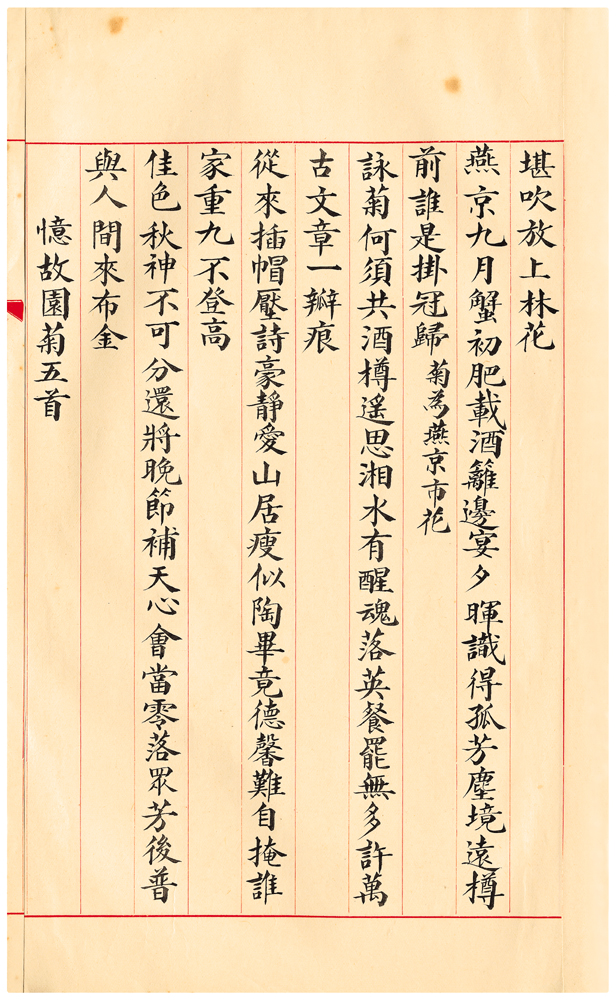 堪吹放上林花
燕京九月蟹初肥載酒籬邊宴夕暉識得孤芳塵境遠樽
前誰是掛冠歸菊為燕京市花
詠菊何須共酒樽遙思湘水有醒魂落英餐罷無多許萬
古文章一瓣痕
從來插帽壓詩豪靜愛山居瘦似陶畢竟德馨難自掩誰
家重九不登高
佳色秋神不可分還將晚節補天心會當零落眾芳後普
與人間來布金
憶故園菊五首